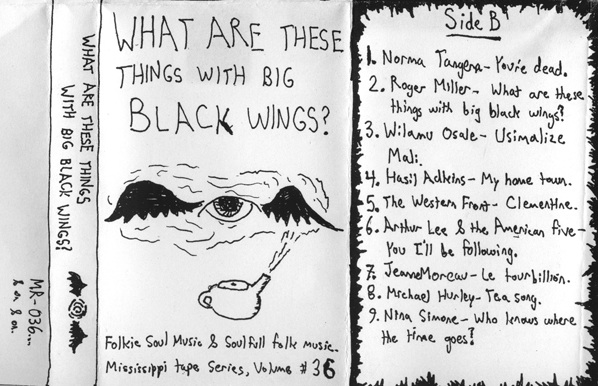 WHAT ARE THESE THINGS
WITH BIG BLACK WINGS?
MR-036...
&.a. &.a.
WHAT ARE THESE
THINGS WITH BIG
BLACK WINGS?
Folkie Soul Music & Soulfull folk music.
Mississippi tape Series, Volume #36
Side B
1. Norma Tangera- You're dead.
2. Roger Miller- What are these
things with big black wings?
3. Wilamu Osale- Usimalize
Mali.
4. Hasil Adkins- My home town.
5. The Western Front- Clementine.
6. Arthur Lee & the American five-
You I'll be following.
7. Jeanne Moreau- Le tourbillion.
8. Michael Hurley- Tea song.
9. Nina Simone- Who knows where
the time goes?